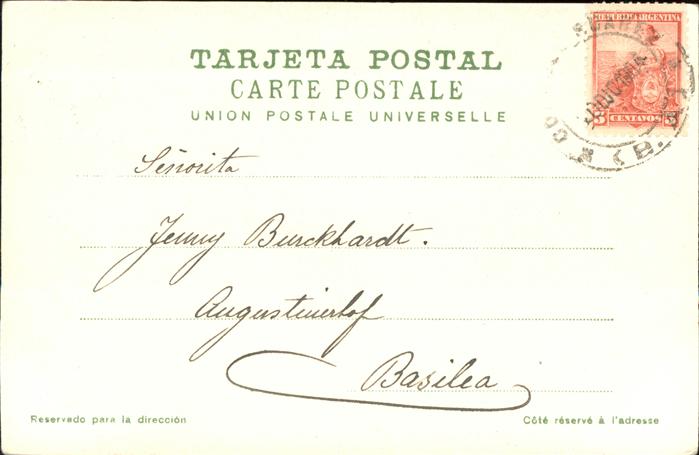 TARJETA POSTAL
CARTE POSTALE
UNION POSTALE UNIVERSELLE
REPUBLICA ARGENTINA
3 CENTAVOS 3
SUAREZ
(B.
Señorita
Jenny Burckhardt.
Augustinerhof
Basilea
Reservado para la dirección
Côté réservé à l'adresse